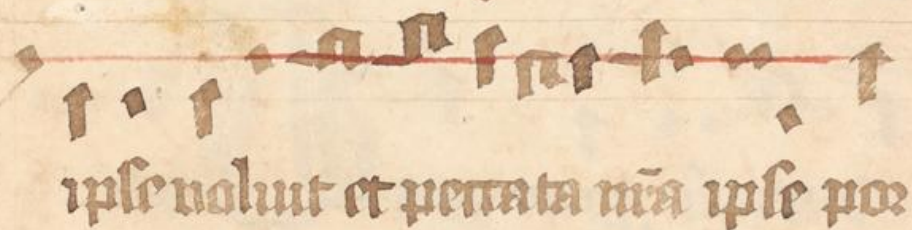 ipse uoluit et peccata nr̃a ipse por